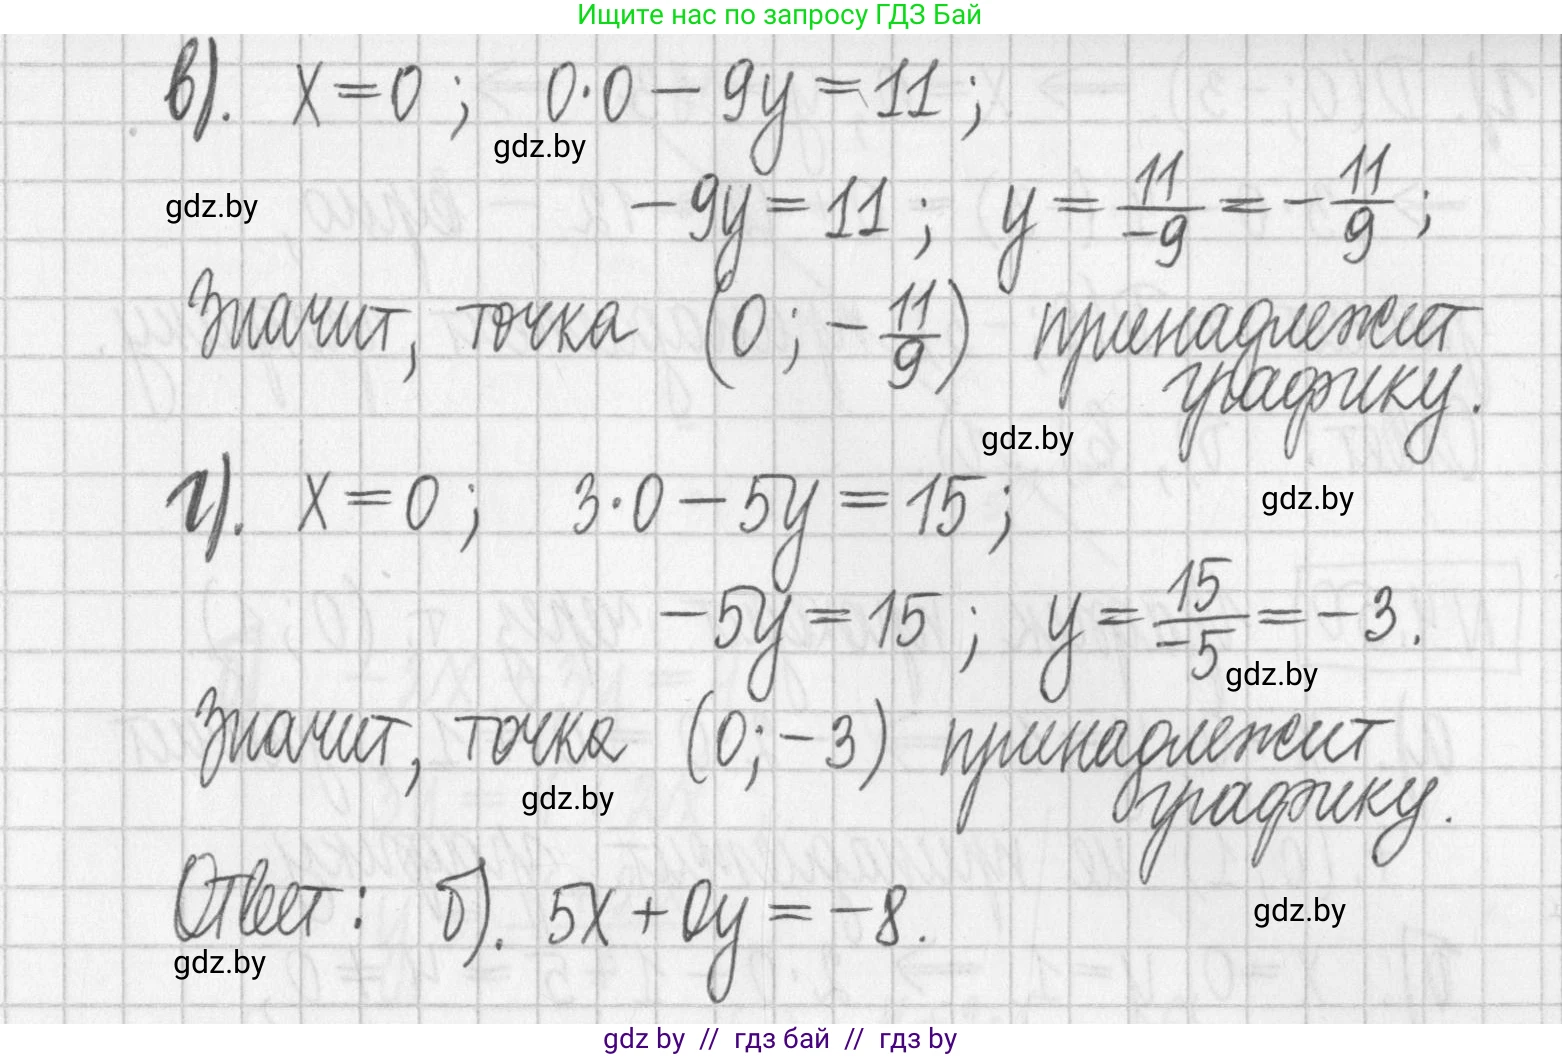 Ищите нас по запросу ГДЗ Бай
в). x = 0 ; 0·0 − 9y = 11 ;
gdz.by
gdz.by
−9y = 11 ; y = 11/−9 = −11/9 ;
Значит, точка (0 ; −11/9) принадлежит
графику.
gdz.by
г). x = 0 ; 3·0 − 5y = 15 ;
gdz.by
−5y = 15 ; y = 15/−5 = −3.
gdz.by
Значит, точка (0; −3) принадлежит
графику.
gdz.by
Ответ: б). 5x + 0y = −8.
gdz.by
gdz.by
gdz by // гдз бай // гдз by